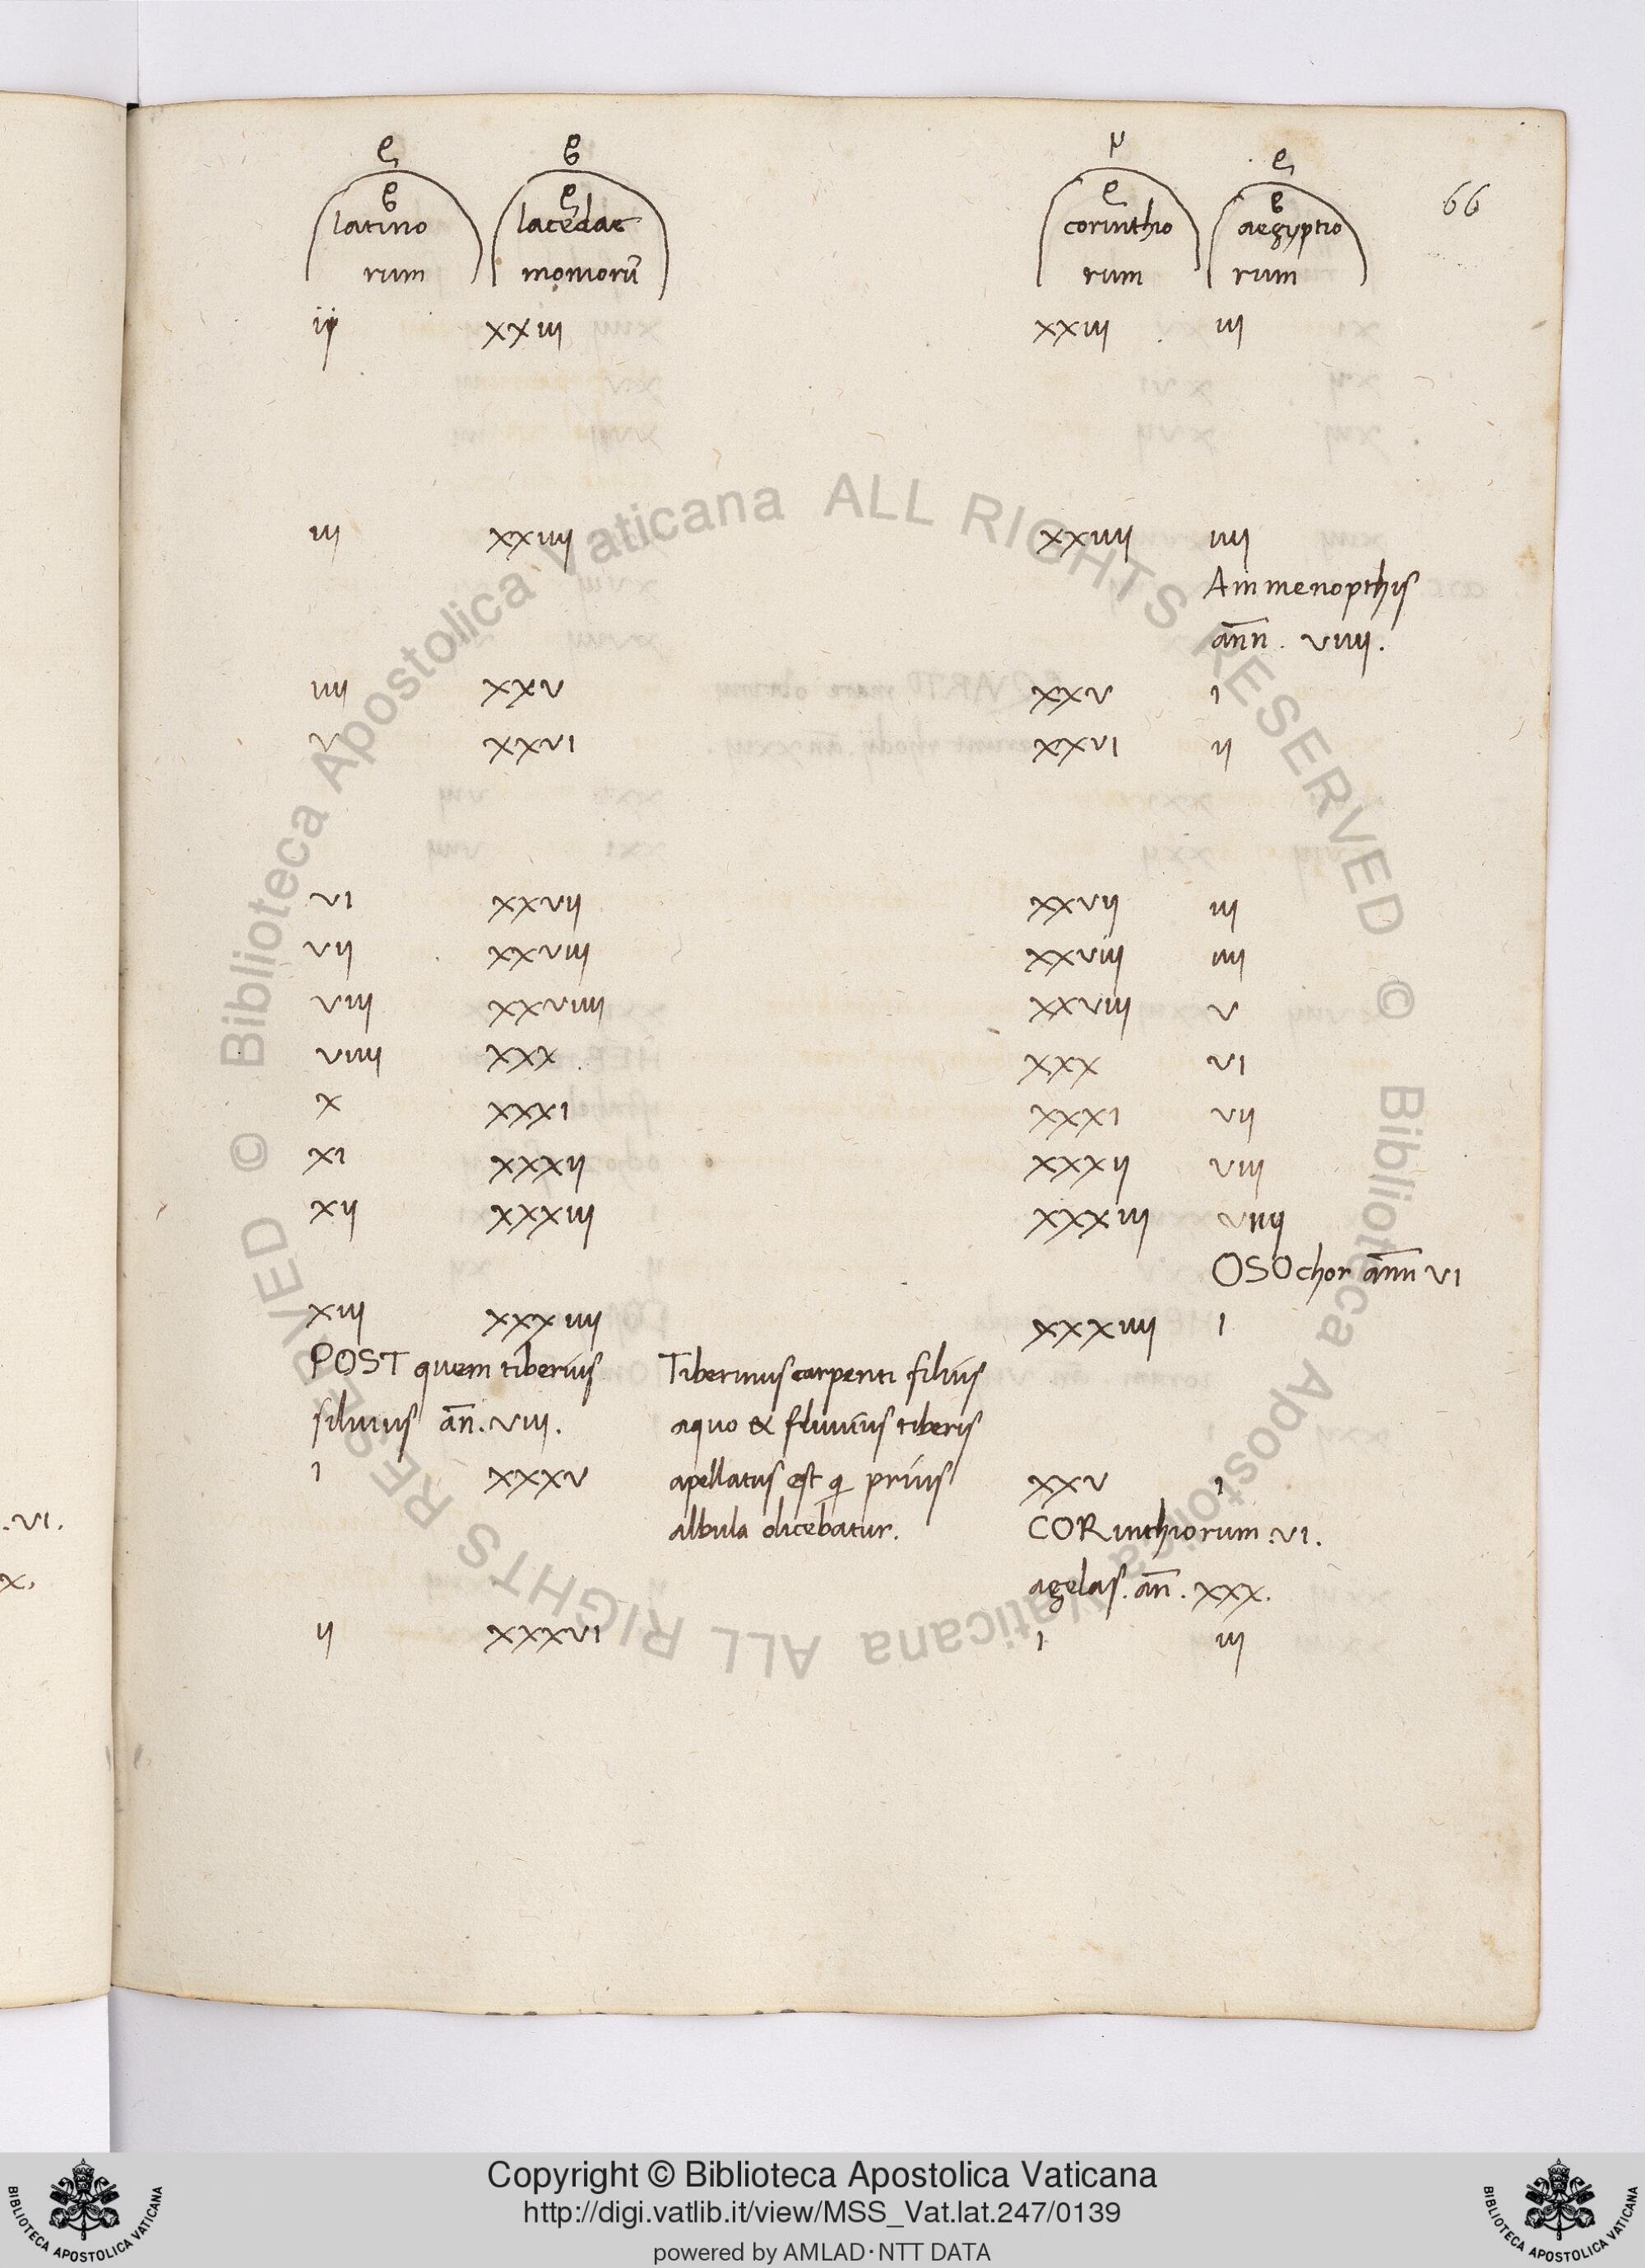 66
latino lacedae corinthio aegyptio
rum moniorū rum rum
ii xxiii xxiii iii
iii xxiiii xxiiii iiii
Ammenopthis
ann̄. viiii.
iiii xxv xxv i
v xxvi xxvi ii
vi xxvii xxvii iii
vii xxviii xxviii iiii
viii xxviiii xxviiii v
viiii xxx xxx vi
x xxxi xxxi vii
xi xxxii xxxii viii
xii xxxiii xxxiii viiii
OSOchor ann̄ vi
xiii xxxiiii xxxiiii i
POST quem tiberius Tiberinus carpenti filius
siluius an̄. viii. aquo & fluuius tiberis
i xxxv apellatus est q prius xxv i
albula dicebatur. CORinthiorum .vi.
agelas. an̄. xxx.
ii xxxvi i iii
.vi.
x.
© Biblioteca Apostolica Vaticana ALL RIGHTS RESERVED © Biblioteca Apostolica Vaticana ALL RIGHTS RESERVED
Copyright © Biblioteca Apostolica Vaticana
http://digi.vatlib.it/view/MSS_Vat.lat.247/0139
powered by AMLAD·NTT DATA
BIBLIOTECA APOSTOLICA VATICANA
BIBLIOTECA APOSTOLICA VATICANA